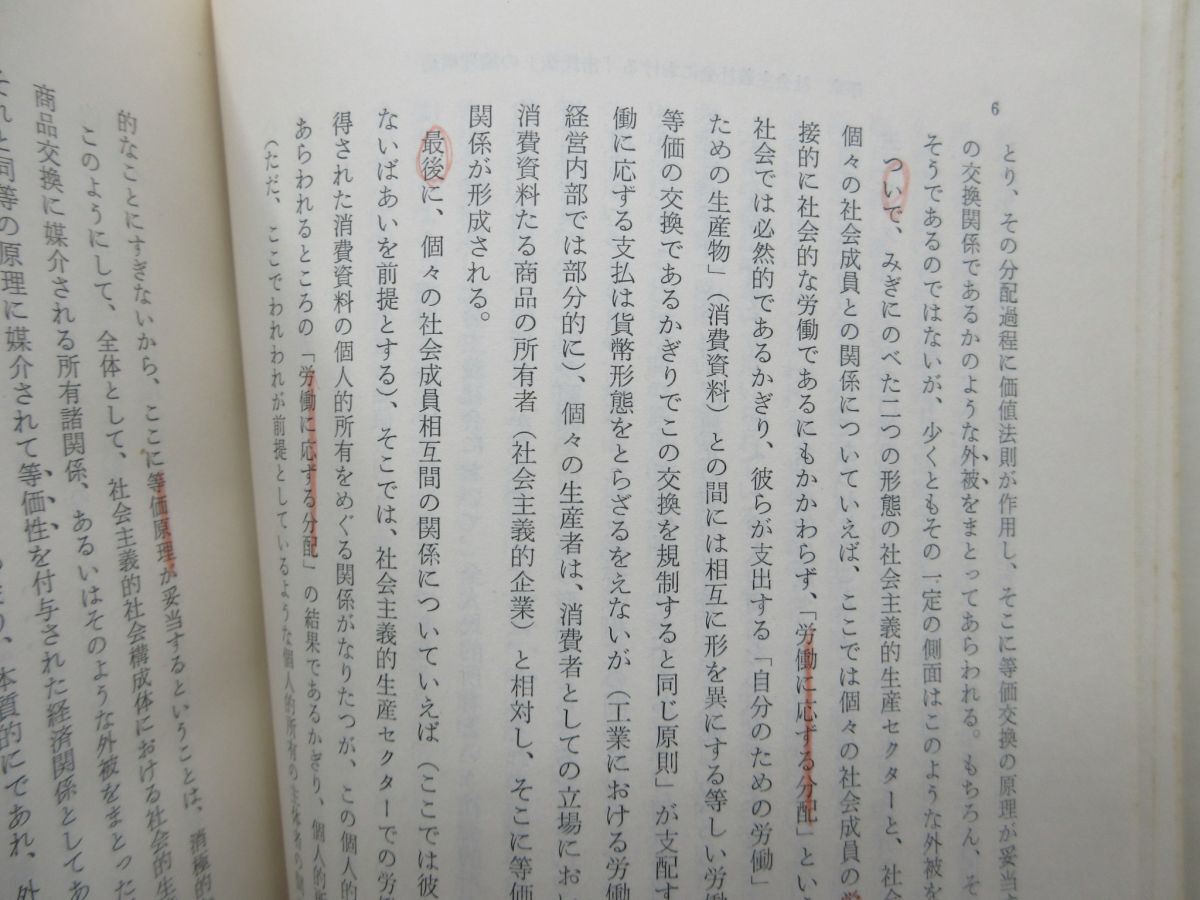 6
とり、その分配過程に価値法則が作用し、そこに等価交換の原理が妥当
の交換関係であるかのような外被をまとってあらわれる。もちろん、そ
そうであるのではないが、少くともその一定の側面はこのような外被を
ついで、みぎにのべた二つの形態の社会主義的生産セクターと、社会
個々の社会成員との関係についていえば、ここでは個々の社会成員の労
接的に社会的な労働であるにもかかわらず、「労働に応ずる分配」とい
社会では必然的であるかぎり、彼らが支出する「自分のための労働」
ための生産物」（消費資料）との間には相互に形を異にする等しい労働
等価の交換であるかぎりでこの交換を規制すると同じ原則」が支配す
働に応ずる支払は貨幣形態をとらざるをえないが（工業における労働
経営内部では部分的に）、個々の生産者は、消費者としての立場にお
消費資料たる商品の所有者（社会主義的企業）と相対し、そこに等価
関係が形成される。
最後に、個々の社会成員相互間の関係についていえば（ここでは彼
ないばあいを前提とする）、そこでは、社会主義的生産セクターでの労
得された消費資料の個人的所有をめぐる関係がなりたつが、この個人的
あらわれるところの「労働に応ずる分配」の結果であるかぎり、個人的
（ただ、ここでわれわれが前提としているような個人的所有の主体者の
的なことにすぎないから、ここに等価原理が妥当するということは、消極的
このようにして、全体として、社会主義的社会構成体における社会的生
商品交換に媒介される所有諸関係、あるいはそのような外被をまとった
それと同等の原理に媒介されて等価性を付与された経済関係としてあ
本質的にであれ、外